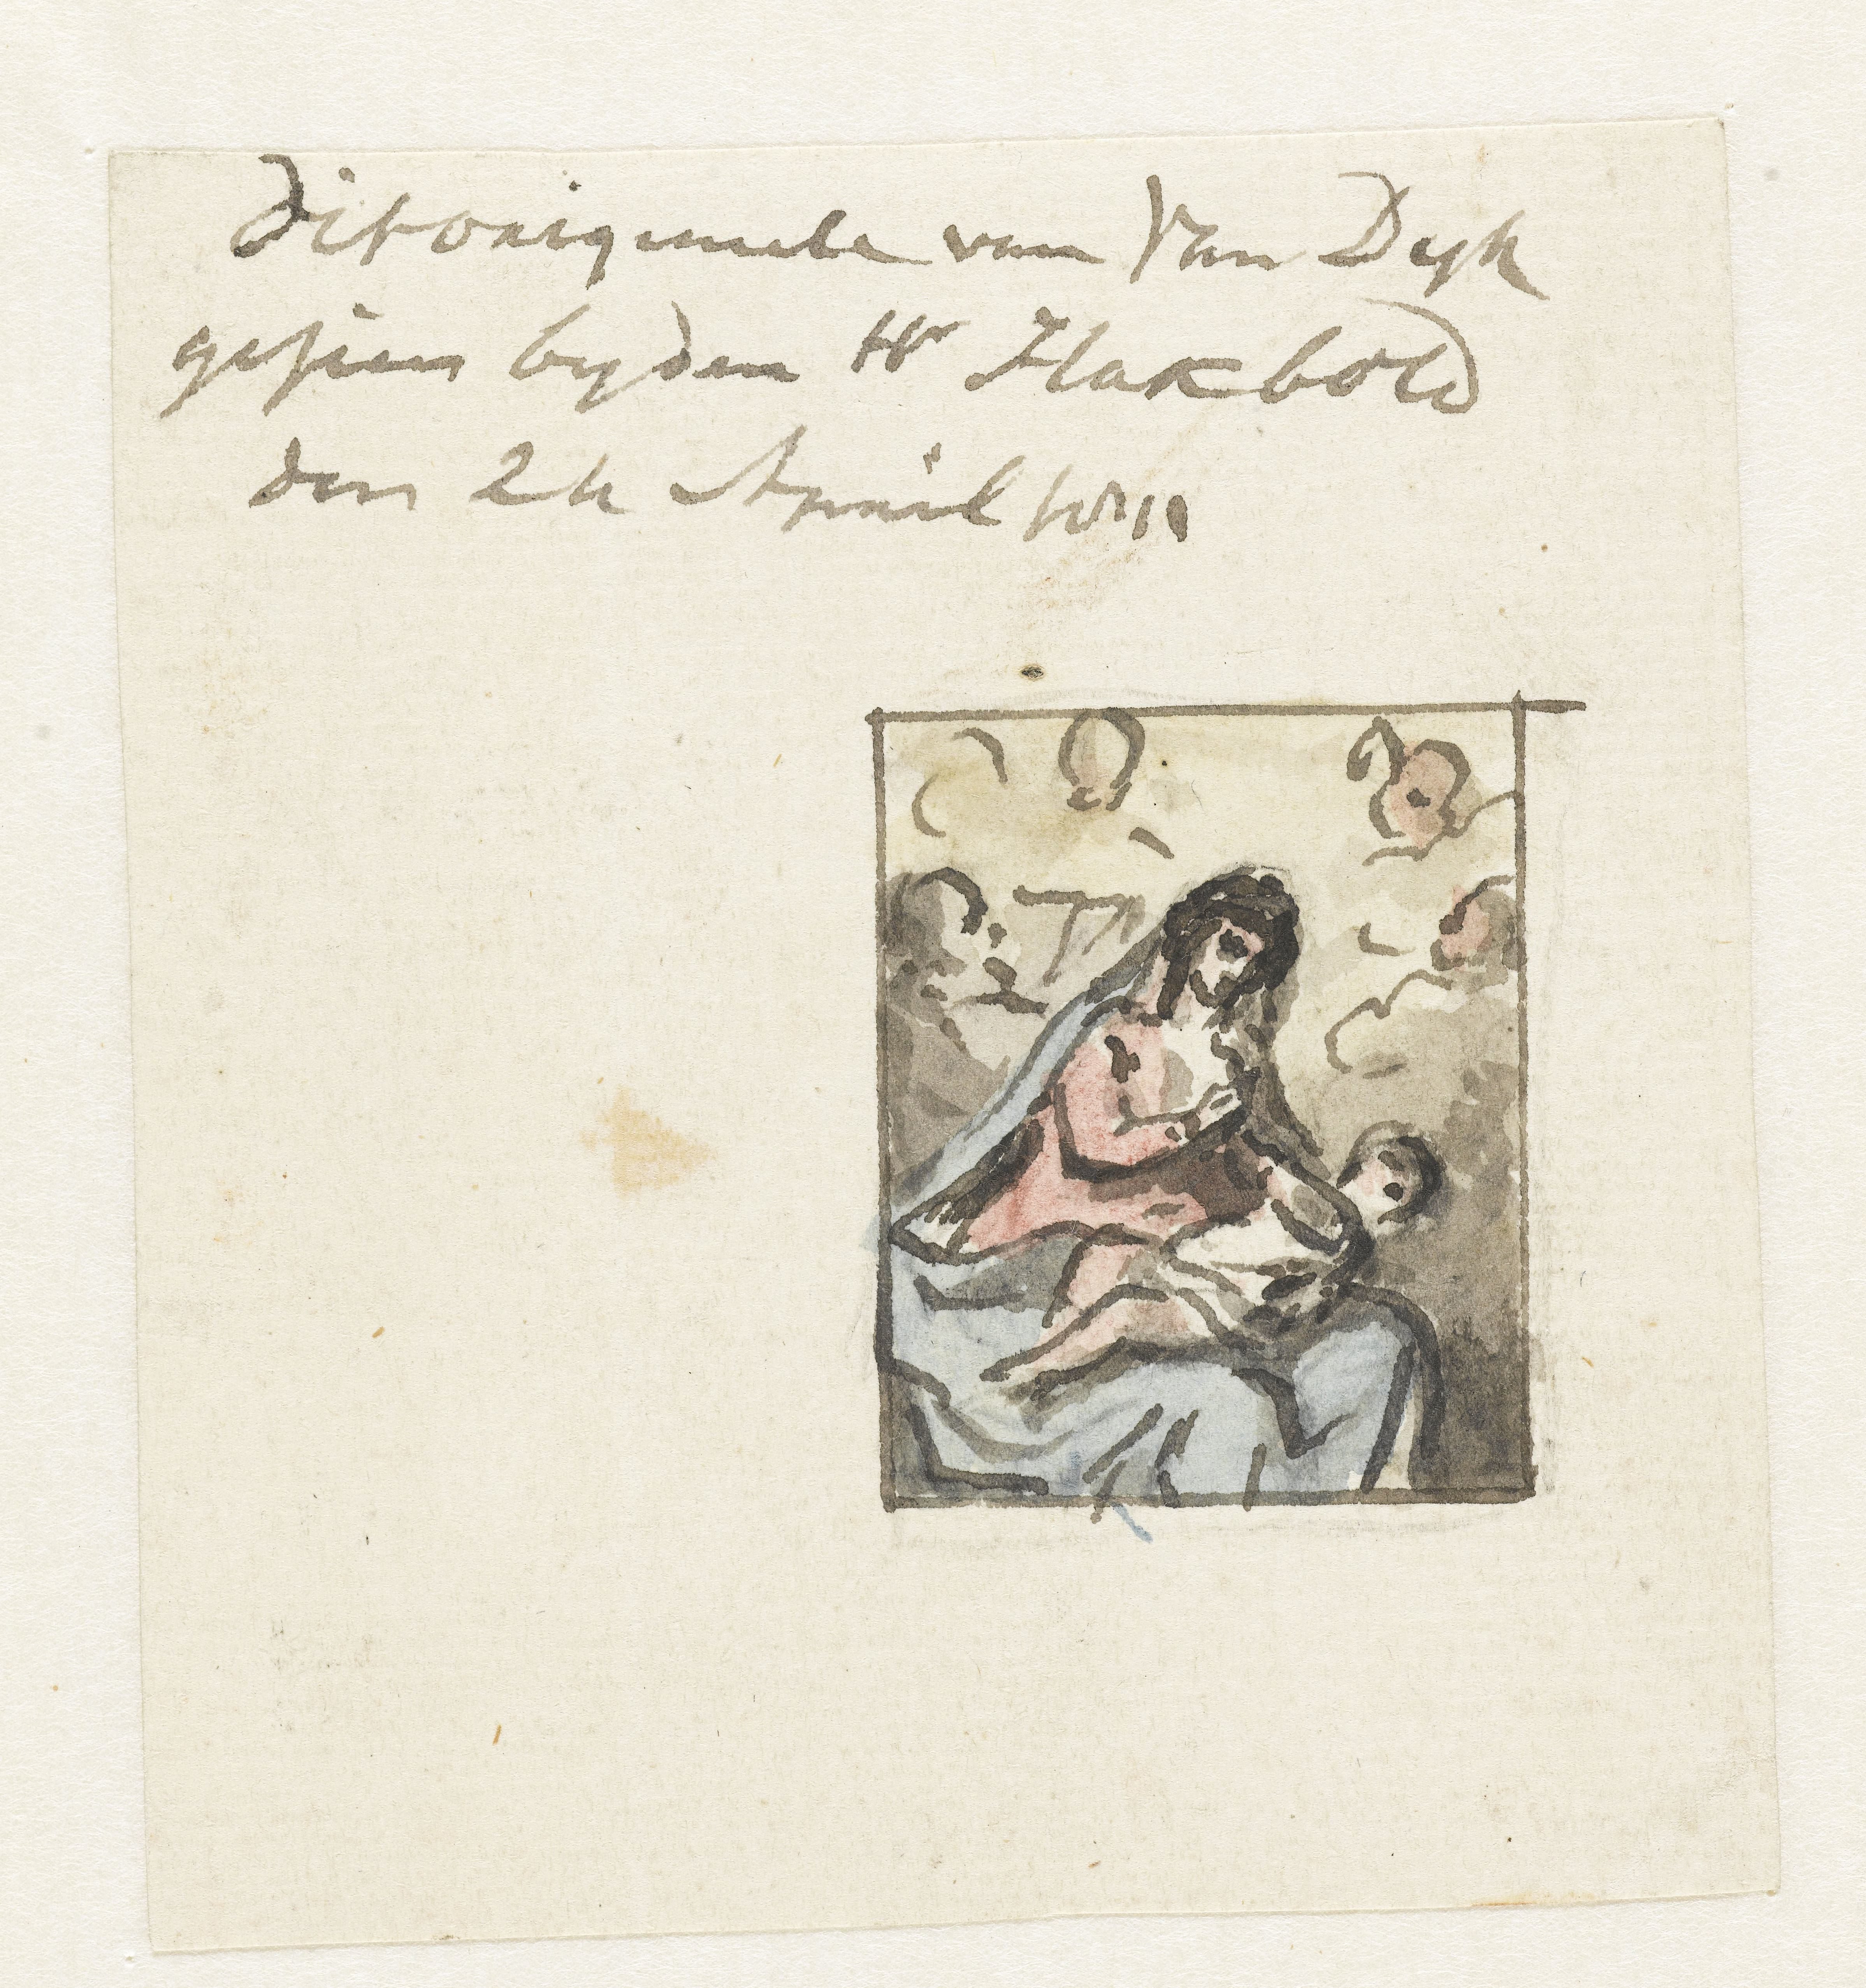 Dit origineele van Van Dyk
gesien by den Hr Hakbold
den 24 April 1811